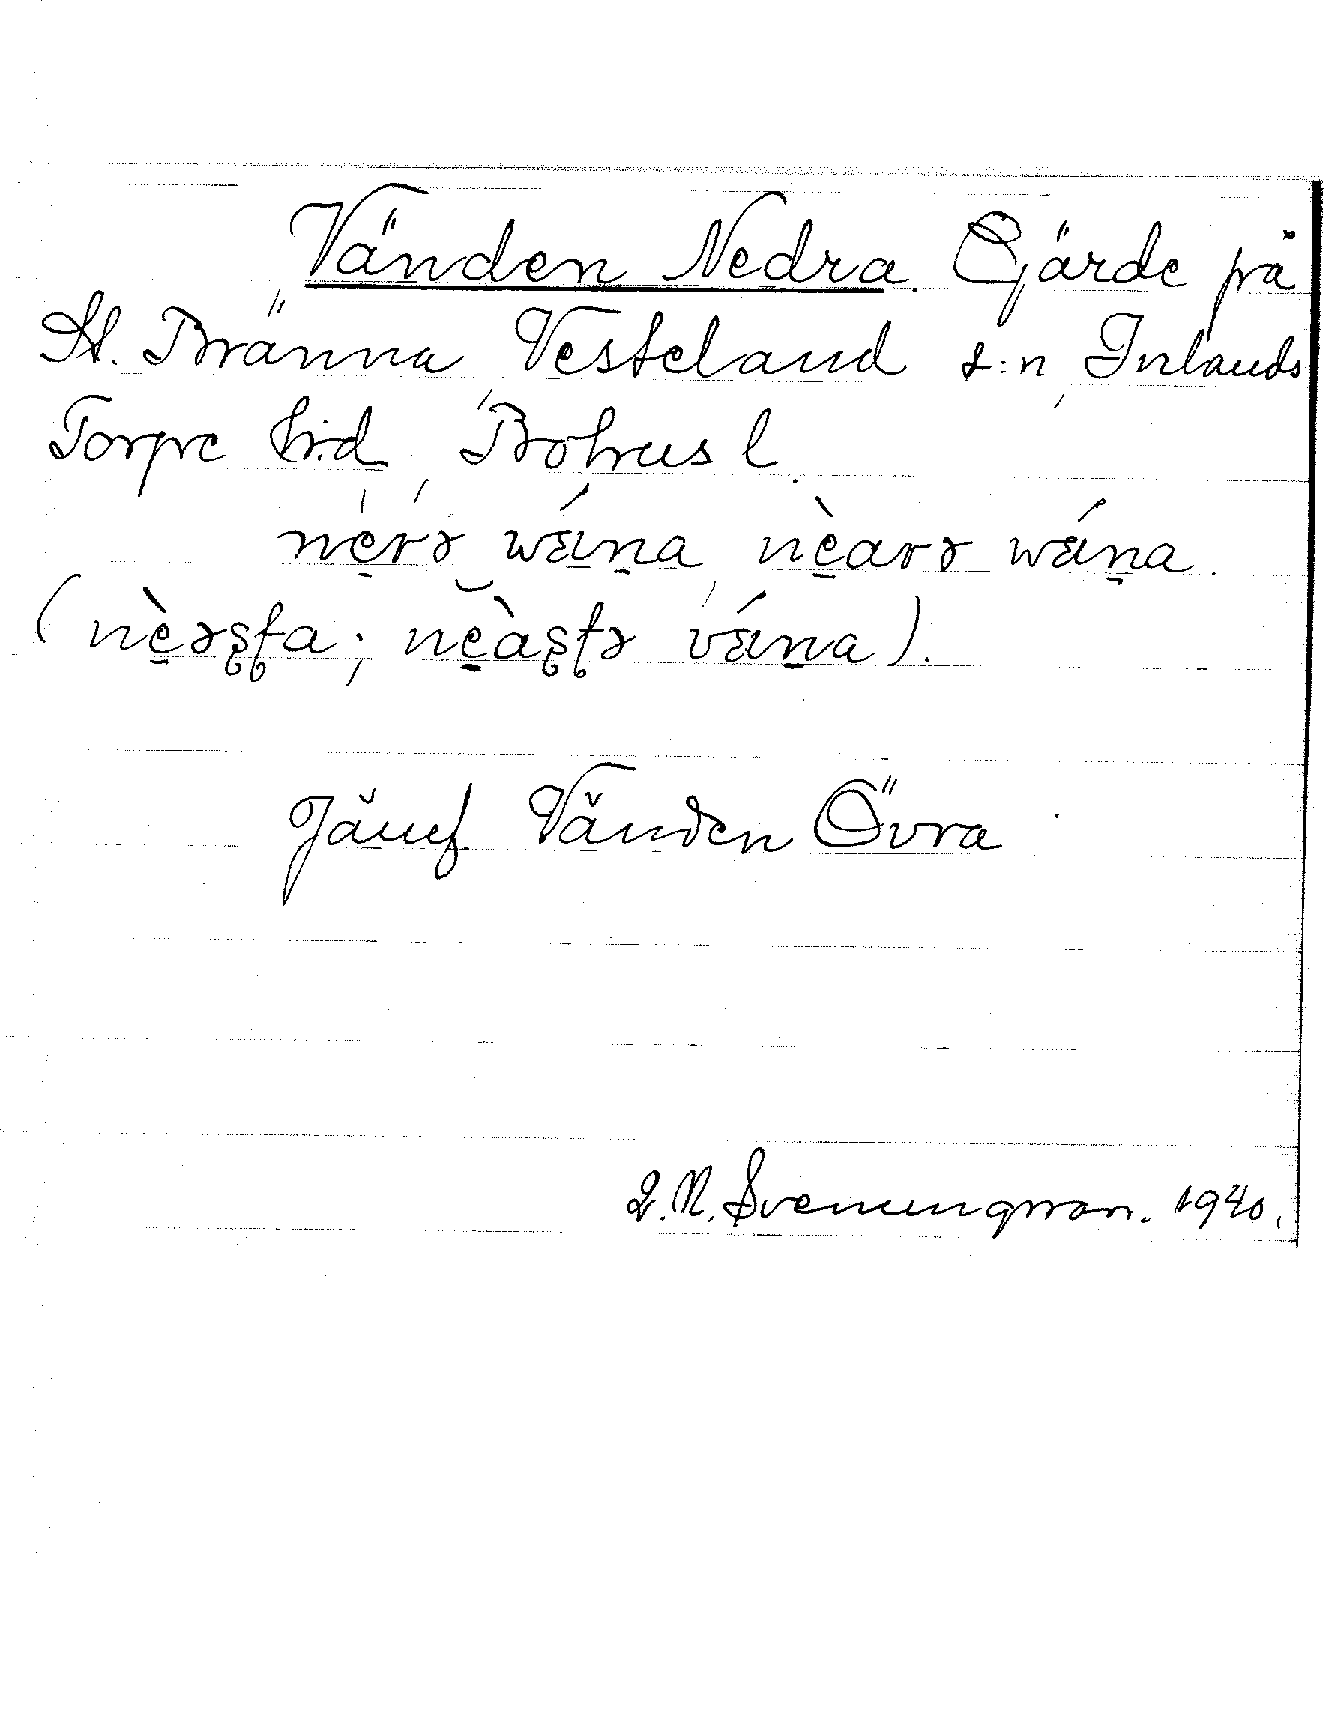 Vänden Nedra. Gjärde på
St. Bränna, Vesteland s:n, Inlands
Torpe h:d, Bohus l.
nè̱rə wǽṉa, nè̱arə wǽṉa.
(nè̱əʂʈa; nè̱àʂʈə vǽṉa).
Jämf Vänden Övra
J. N. Svenungsson. 1940.